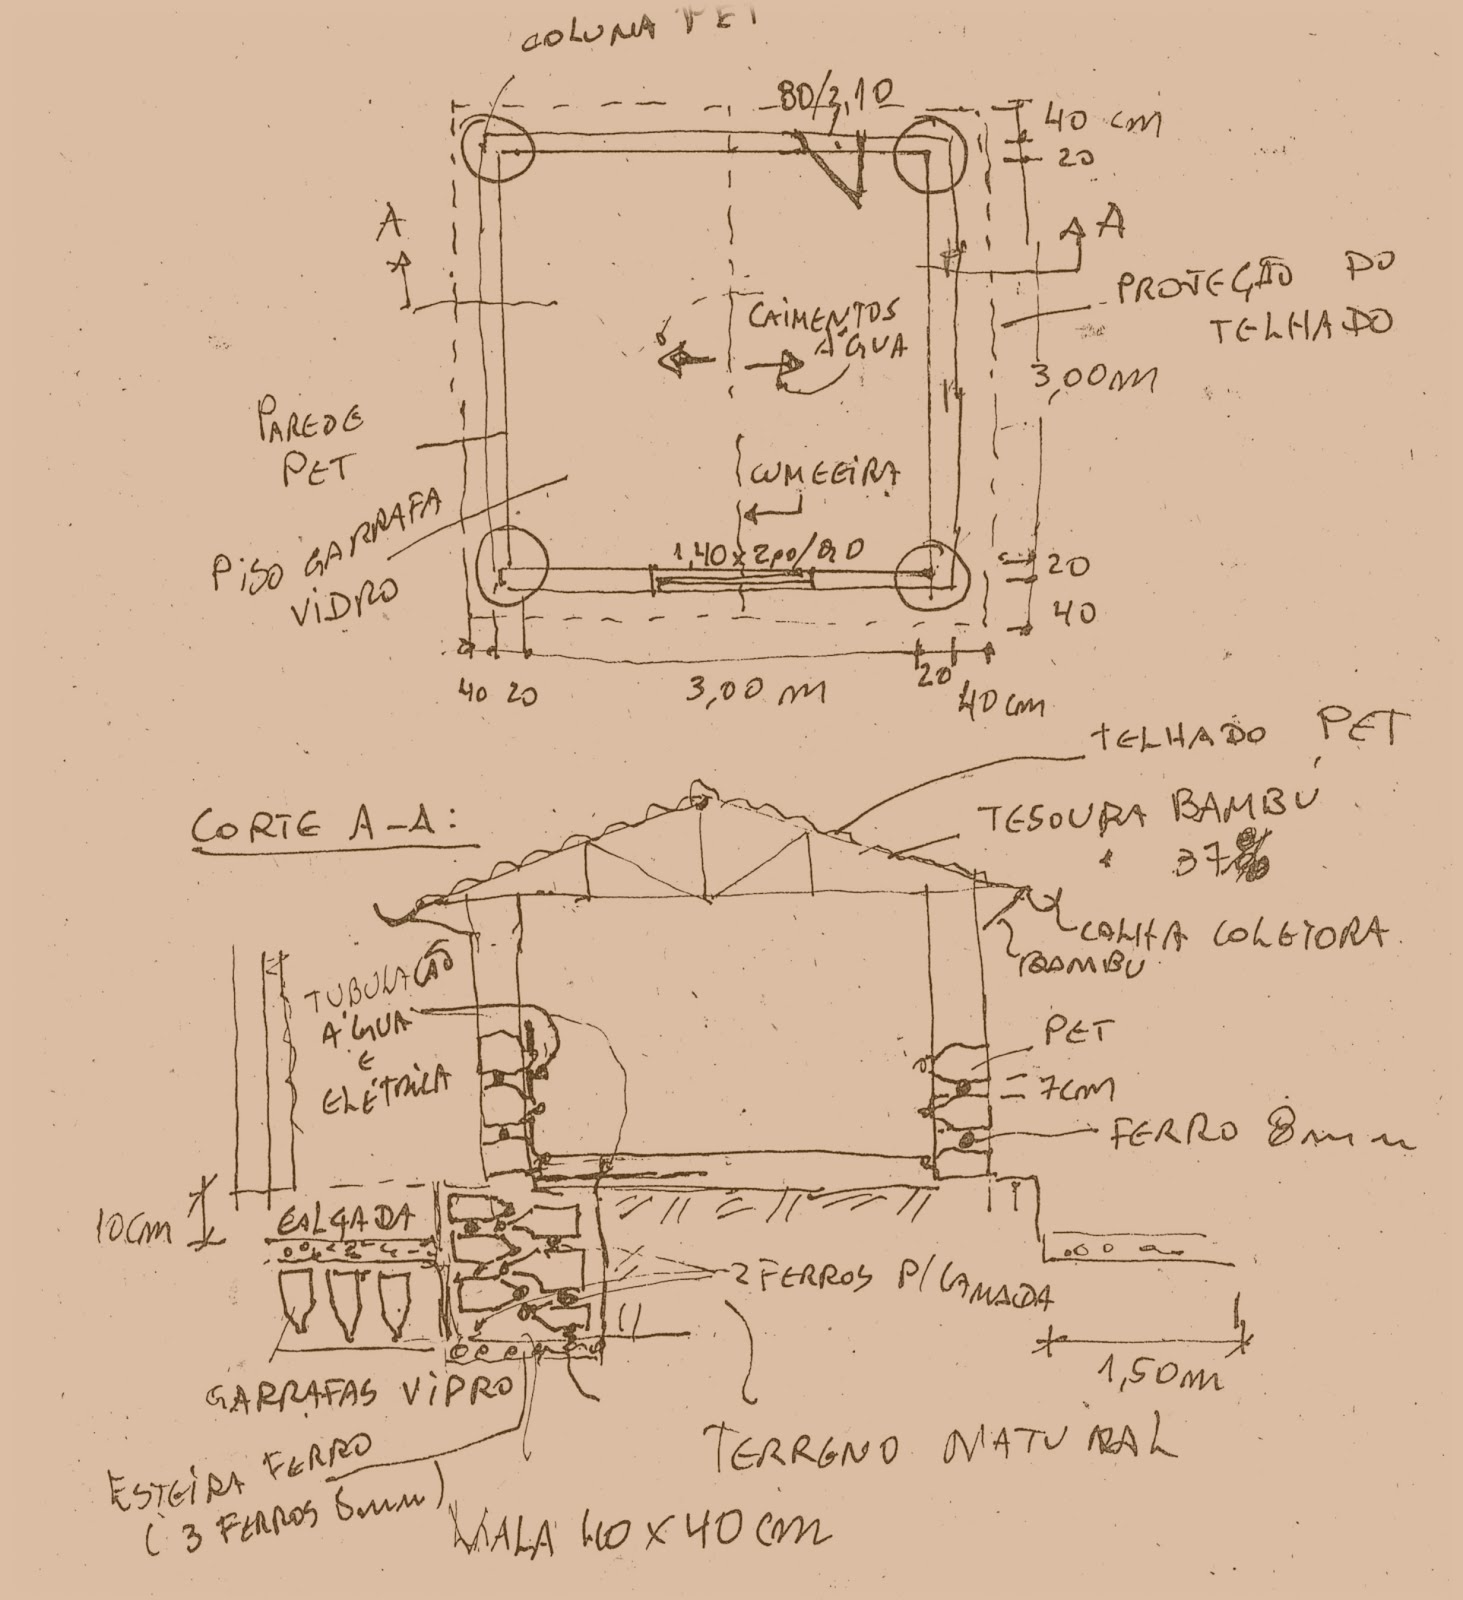 COLUNA PET
80/2,10
40 cm
20
A
A
PROTEÇÃO DO
TELHADO
CAIMENTOS
ÁGUA
3,00m
PAREDE
PET
CUMEEIRA
PISO GARRAFA
VIDRO
20
40
40 20
3,00 m
20
40 cm
TELHADO PET
CORTE A-A:
TESOURA BAMBU
37%
CALHA COLETORA
BAMBU
TUBULAÇÃO
ÁGUA
E
ELÉTRICA
PET
7cm
FERRO 8mm
10cm
CALÇADA
2 FERROS P/CAMADA
1,50m
GARRAFAS VIDRO
TERRENO NATURAL
ESTEIRA FERRO
VALA 40 x 40 cm